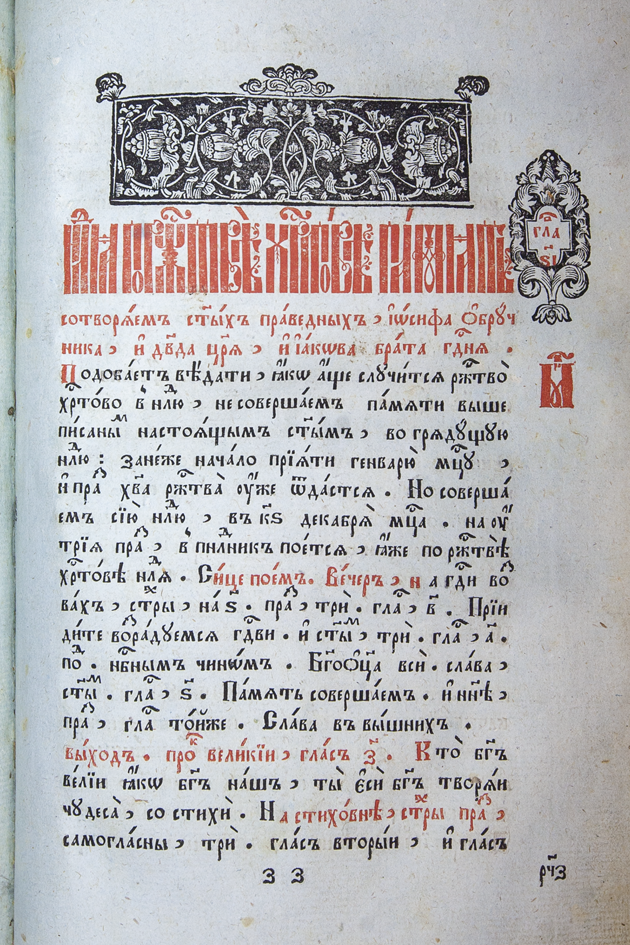 гла
ѕ҃і
сотворѧ́емъ ст҃ы́хъ пра́ведныхъ, і҆ѡ́сифа ѻ҆брꙋч
ника, и҆ дв҃да цр҃ѧ̀, и҆ і҆а́кѡва бра́та гдⷭ҇нѧ.
Подоба́етъ вѣ́дати, ꙗ҆́кѡ а҆́ще слꙋчи́тсѧ ржⷭ҇тво̀
хрⷭ҇то́во в нлⷣю, не соверша́емъ па́мѧти вы́ше
пи́саныⷨ настоѧ́щымъ ст҃ы́мъ, во грѧдꙋ́щꙋю
нлⷣю: зане́же нача́ло прїѧ́ти генварю̀ мцⷭ҇ꙋ,
и҆ праⷥ хв҃а ржⷭ҇тва̀ ᲂу҆́же ѿда́стсѧ. Но соверша́
емъ сїю̀ нлⷣю, въ к҃ѕ декабрѧ̀ мцⷭ҇а. на ᲂу҆́
трїѧ праⷥ, в пнлⷣникъ пое́тсѧ, ꙗ҆́же по ржⷭ҇твѣ̀
хрⷭ҇то́вѣ нлⷣѧ. Си́це пое́мъ. Ве́черъ, н а гдⷭ҇и во
ва́хъ, стхⷬ҇ры, на ѕ҃. праⷥ, трѝ. глаⷭ, в҃. Прїи
ди́те возра́дꙋемсѧ гдⷭ҇ви. и҆ ст҃ы́ⷨ, трѝ. глаⷭ, а҃.
поⷣ. нбⷭ҇нымъ чино́мъ. Бг҃оѻц҃а всѝ. сла́ва,
ст҃ы́ⷨ. глаⷭ, ѕ҃. Па́мѧть соверша́емъ. и҆ нн҃ѣ,
праⷥ, глаⷭ то́йже. Сла́ва въ вы́шнихъ.
вы́ходъ. проⷦ вели́кїи, гла́съ з҃. Кто̀ бг҃ъ
ве́лїи ꙗ҆́кѡ бг҃ъ на́шъ, ты̀ є҆сѝ бг҃ъ творѧ́и
чꙋдеса̀, со стихѝ. Н а стихо́внѣ, стхⷬ҇ры праⷥ,
самогла́сны, трѝ. гла́съ вторы́и, и҆ гла́съ
З З
рч҃з